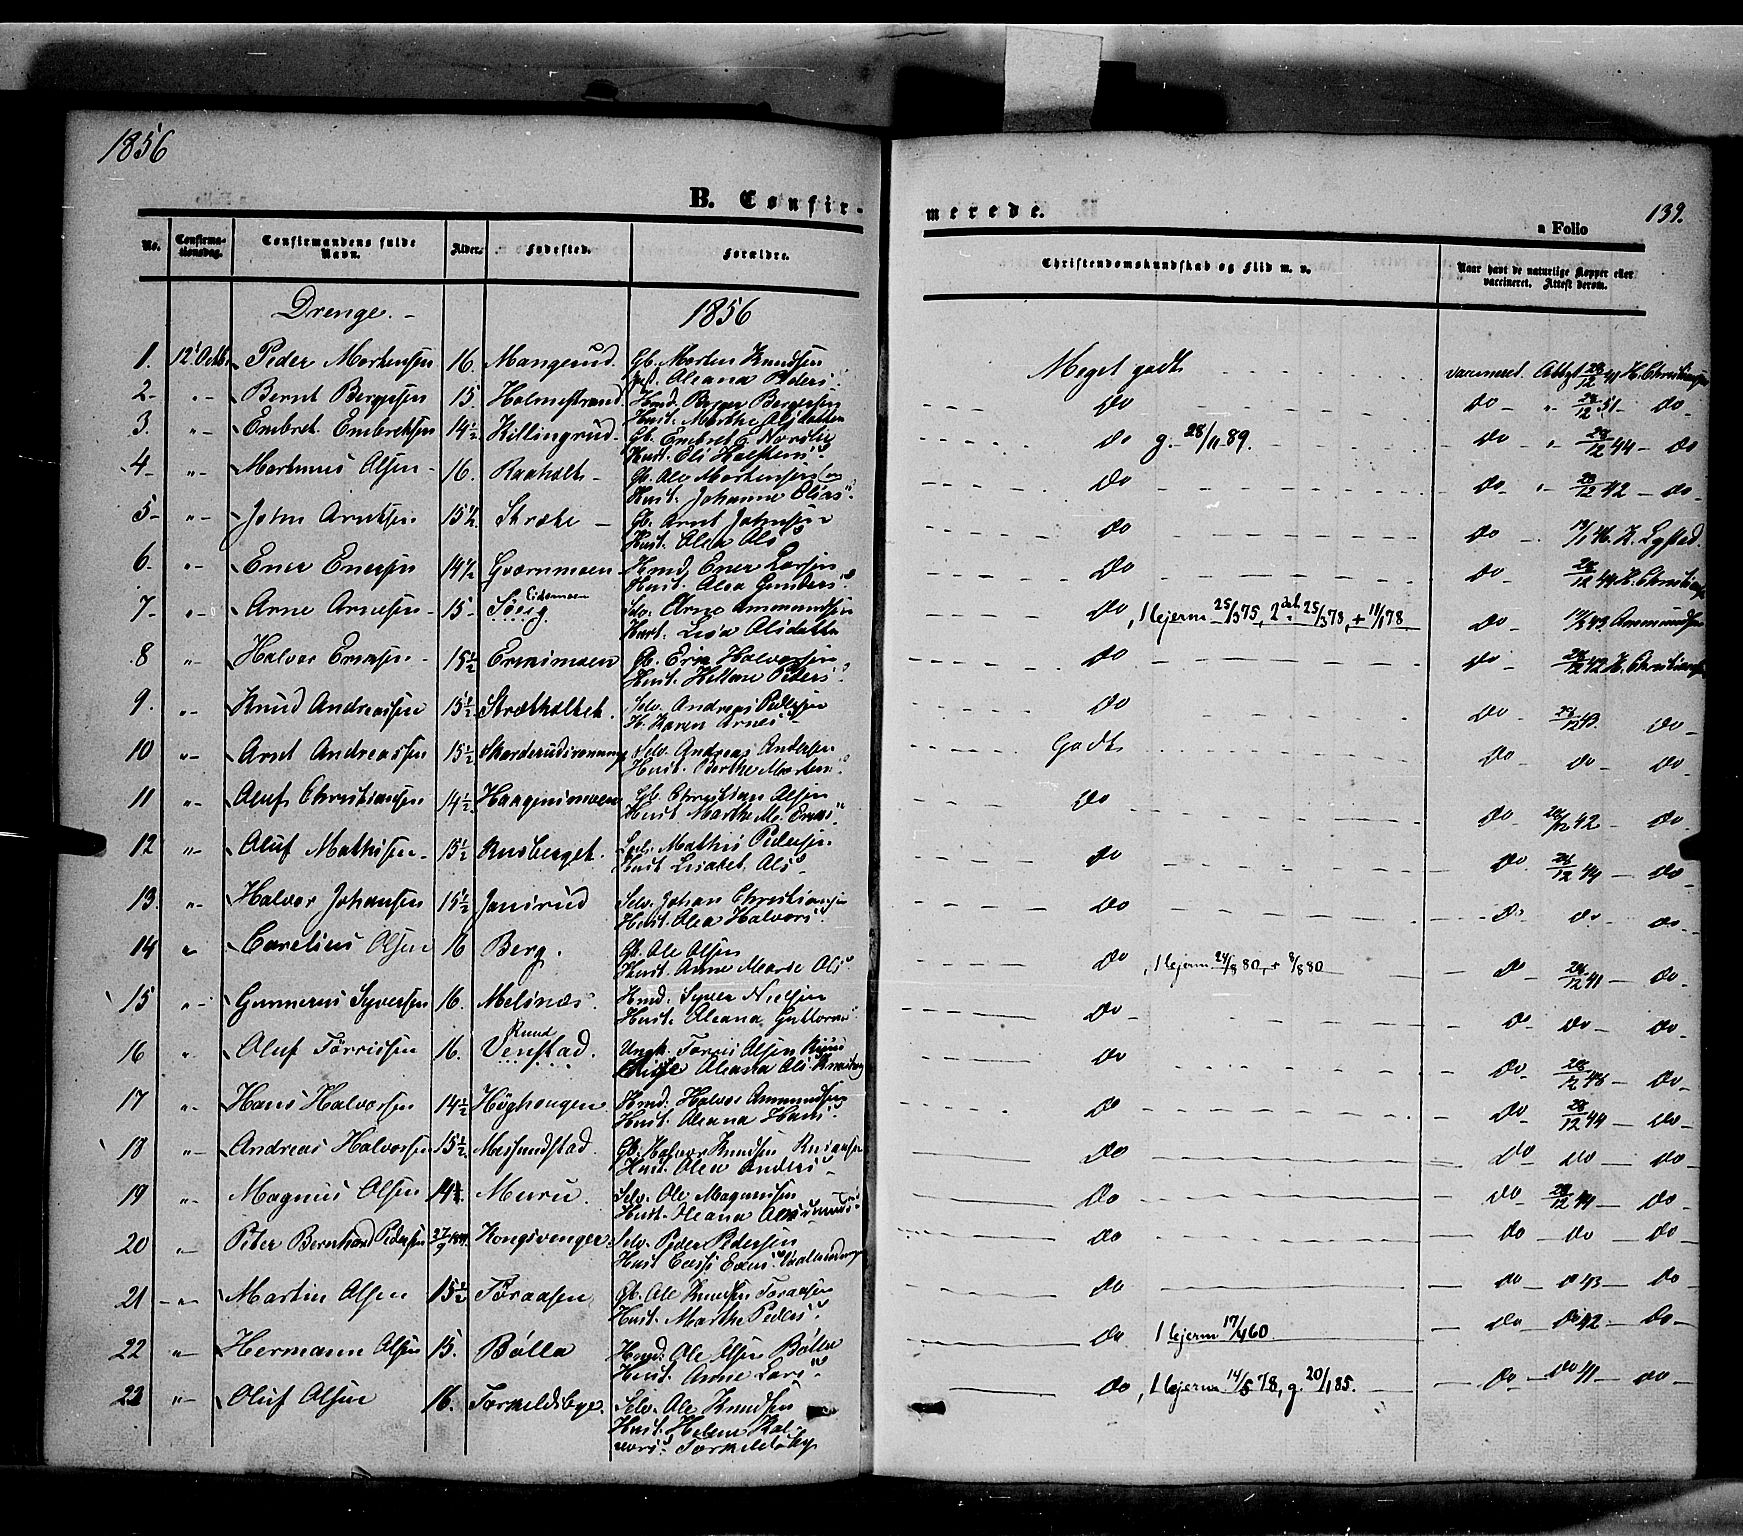 1856
B. Confir-
merede.
139.
a Folio
No.
Confirma-
tionsdag.
Confirmandens fulde
Navn.
Alder.
Fødested.
Forældre.
Christendomskundskab og Flid m. v.
Naar havt de naturlige Kopper eller
vaccineret. Attest derom.
Drenge. - 1856
1. 12' Octb. Peder Mortensen 16. Mangerud. Gb. Morten Knudsen
Aleana Peders" Meget godt vaccineret Attest 28/12 41 H. Christiansen
2- "- Bernt Bergersen 15 Holmestrand Hmd. Berger Bergersen
Hust. Marthe Olsdatter Do Do " 28/12 51 - Do
3. "- Embret Embretsen 14½ Killingrud Gb. Embret E Nordlie
Hust. Eli Halstens" do g. 28/11 89. Do " 28/12 44 - Do
4- "- Marthinus Olsen - 16. Raaholt - Gb. Ole Mortensen
Hust. Johanne Elias" Do Do- " 28/12 42 - Do-
5- "- John Arntsen 15½ Stræte - Gb. Arnt Johnsen
Hust. Olea Ols" Do Do - Lysted.
6- "- Ener Enersen 14½ Gværnmoen Hmd. Ener Larsen
Hust. Olea Gunders" Do Do - H. Christiansen
7- "- Arne Arnesen - 15 - Eidsmoen
Selv. Arne Ammundsen
Hust. Lisa Olsdatter Do, 1 hjerm 25/3 75, 2det 25/3 78, + 11/1 78 Do - 43 Ammundsen
8 "- Halvor Ericksen - 15½ Ericsmoen Gb. Eric Halvorsen
Hust. Peders" Do Do - 28/12 42 H. Christiansen
9. "- Knud Andreassen 15½ Strætholtet. Selv. Andreas Pedersen
H. Karen Arnes" Do Do - 28/12 43. Do
10 "- Arnt Andreassen 15½ Selv. Andreas Andersen
Hust. Berthe Martins" Godt Do - Do - Do
11 "- Oluf Christiansen 14½ Haagensmoen Gb. Christian Olsen
Hust Marthe M. Do Do 28/12 42 - Do
12 "- Oluf Mathissen - 15½ Rusberget. Selv. Mathis Pedersen
Hust Lisabet Ols" Do Do 28/12 44 - Do -
13. "- Halvor Johansen 15½ Jansrud Selv. Johan Christiansen
Hust. Olea Halvors" Do Do - Do - Do
14 " Carelius Olsen 16 Berg. Gb. Ole Olsen
Hust. Anne Marie Ols" Do, 1 hjerm 24/8 80, + 8/8 80 Do - 28/12 41 - Do
15 "- Gunnerus Syversen 16. Melsnæs Hmd. Syver Nielsen
Hust. Oleana Guttorms" Do - Do - Do - Do
16 " Oluf Törrissen 16. Ruud
Venstad. Ungk. Törris Olsen
Pige Oleana Ols" Do Do - 28/12 - Do -
17 " Hans Halvorsen 14½ Höghougen Hmd. Halvor Ammundsen
Hust. Oleana Hans" Do Do - 28/12 44 - Do -
18 "- Andreas Halvorsen 15½ Messundstad. Gb. Halvor Knudsen
Hust. Olea Anders" Do Do - Do - Do -
19 "- Magnus Olsen 14½ Muru. Selv. Ole Magnussen
Hust. Oleana Do - Do 28/12 44 - Do
20 " Peter Bernhard Pedersen Kongsvenger Selv. Peder Pedersen
Hust Do - Do - Do - Do
21 - "- Martin Olsen 15½ Toraasen Gb. Ole Knudsen Toraasen
Hust. Marthe Peders" Do - Do - Do 43 - Do -
22 "- Hermann Olsen 15. Bölla Hmd. Ole Olsen Bölla
Hust. Anne Lars" Do 1 hjerm 17/4 60 - Do - Do 42 - Do -
23 "- Oluf Olsen 16. Torkeldsbye. Selv. Ole Knudsen
Hust. Helene Hal-
vors" Torkeldsby Do, 1 hjerm 14/5 78, g. 20/1 85. - Do - Do 41 - Do -